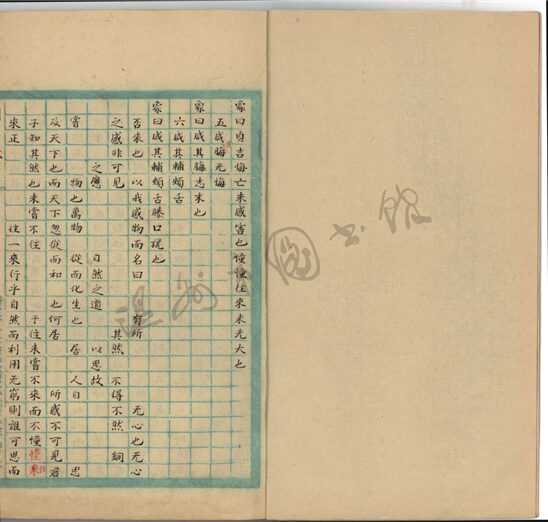 象曰貞吉悔亡未感害也憧憧往來未光大也
五咸其脢无悔
象曰咸其脢志末也
六咸其輔頰舌
象曰咸其輔頰舌滕口說也
否來也 以我感物而名曰 有所 无心也无心
之感非可見 其然 不得不然
之應 自然之道 以思故
嘗 物也萬物 從而化生也 居 人自 思
及天下也而天下忽從而和 也何居 所感不可見君
子知其然也未嘗不往 予往未嘗不來而不憧憧
來正 往一來行乎自然而利用无窮則誰可思而
圖書館